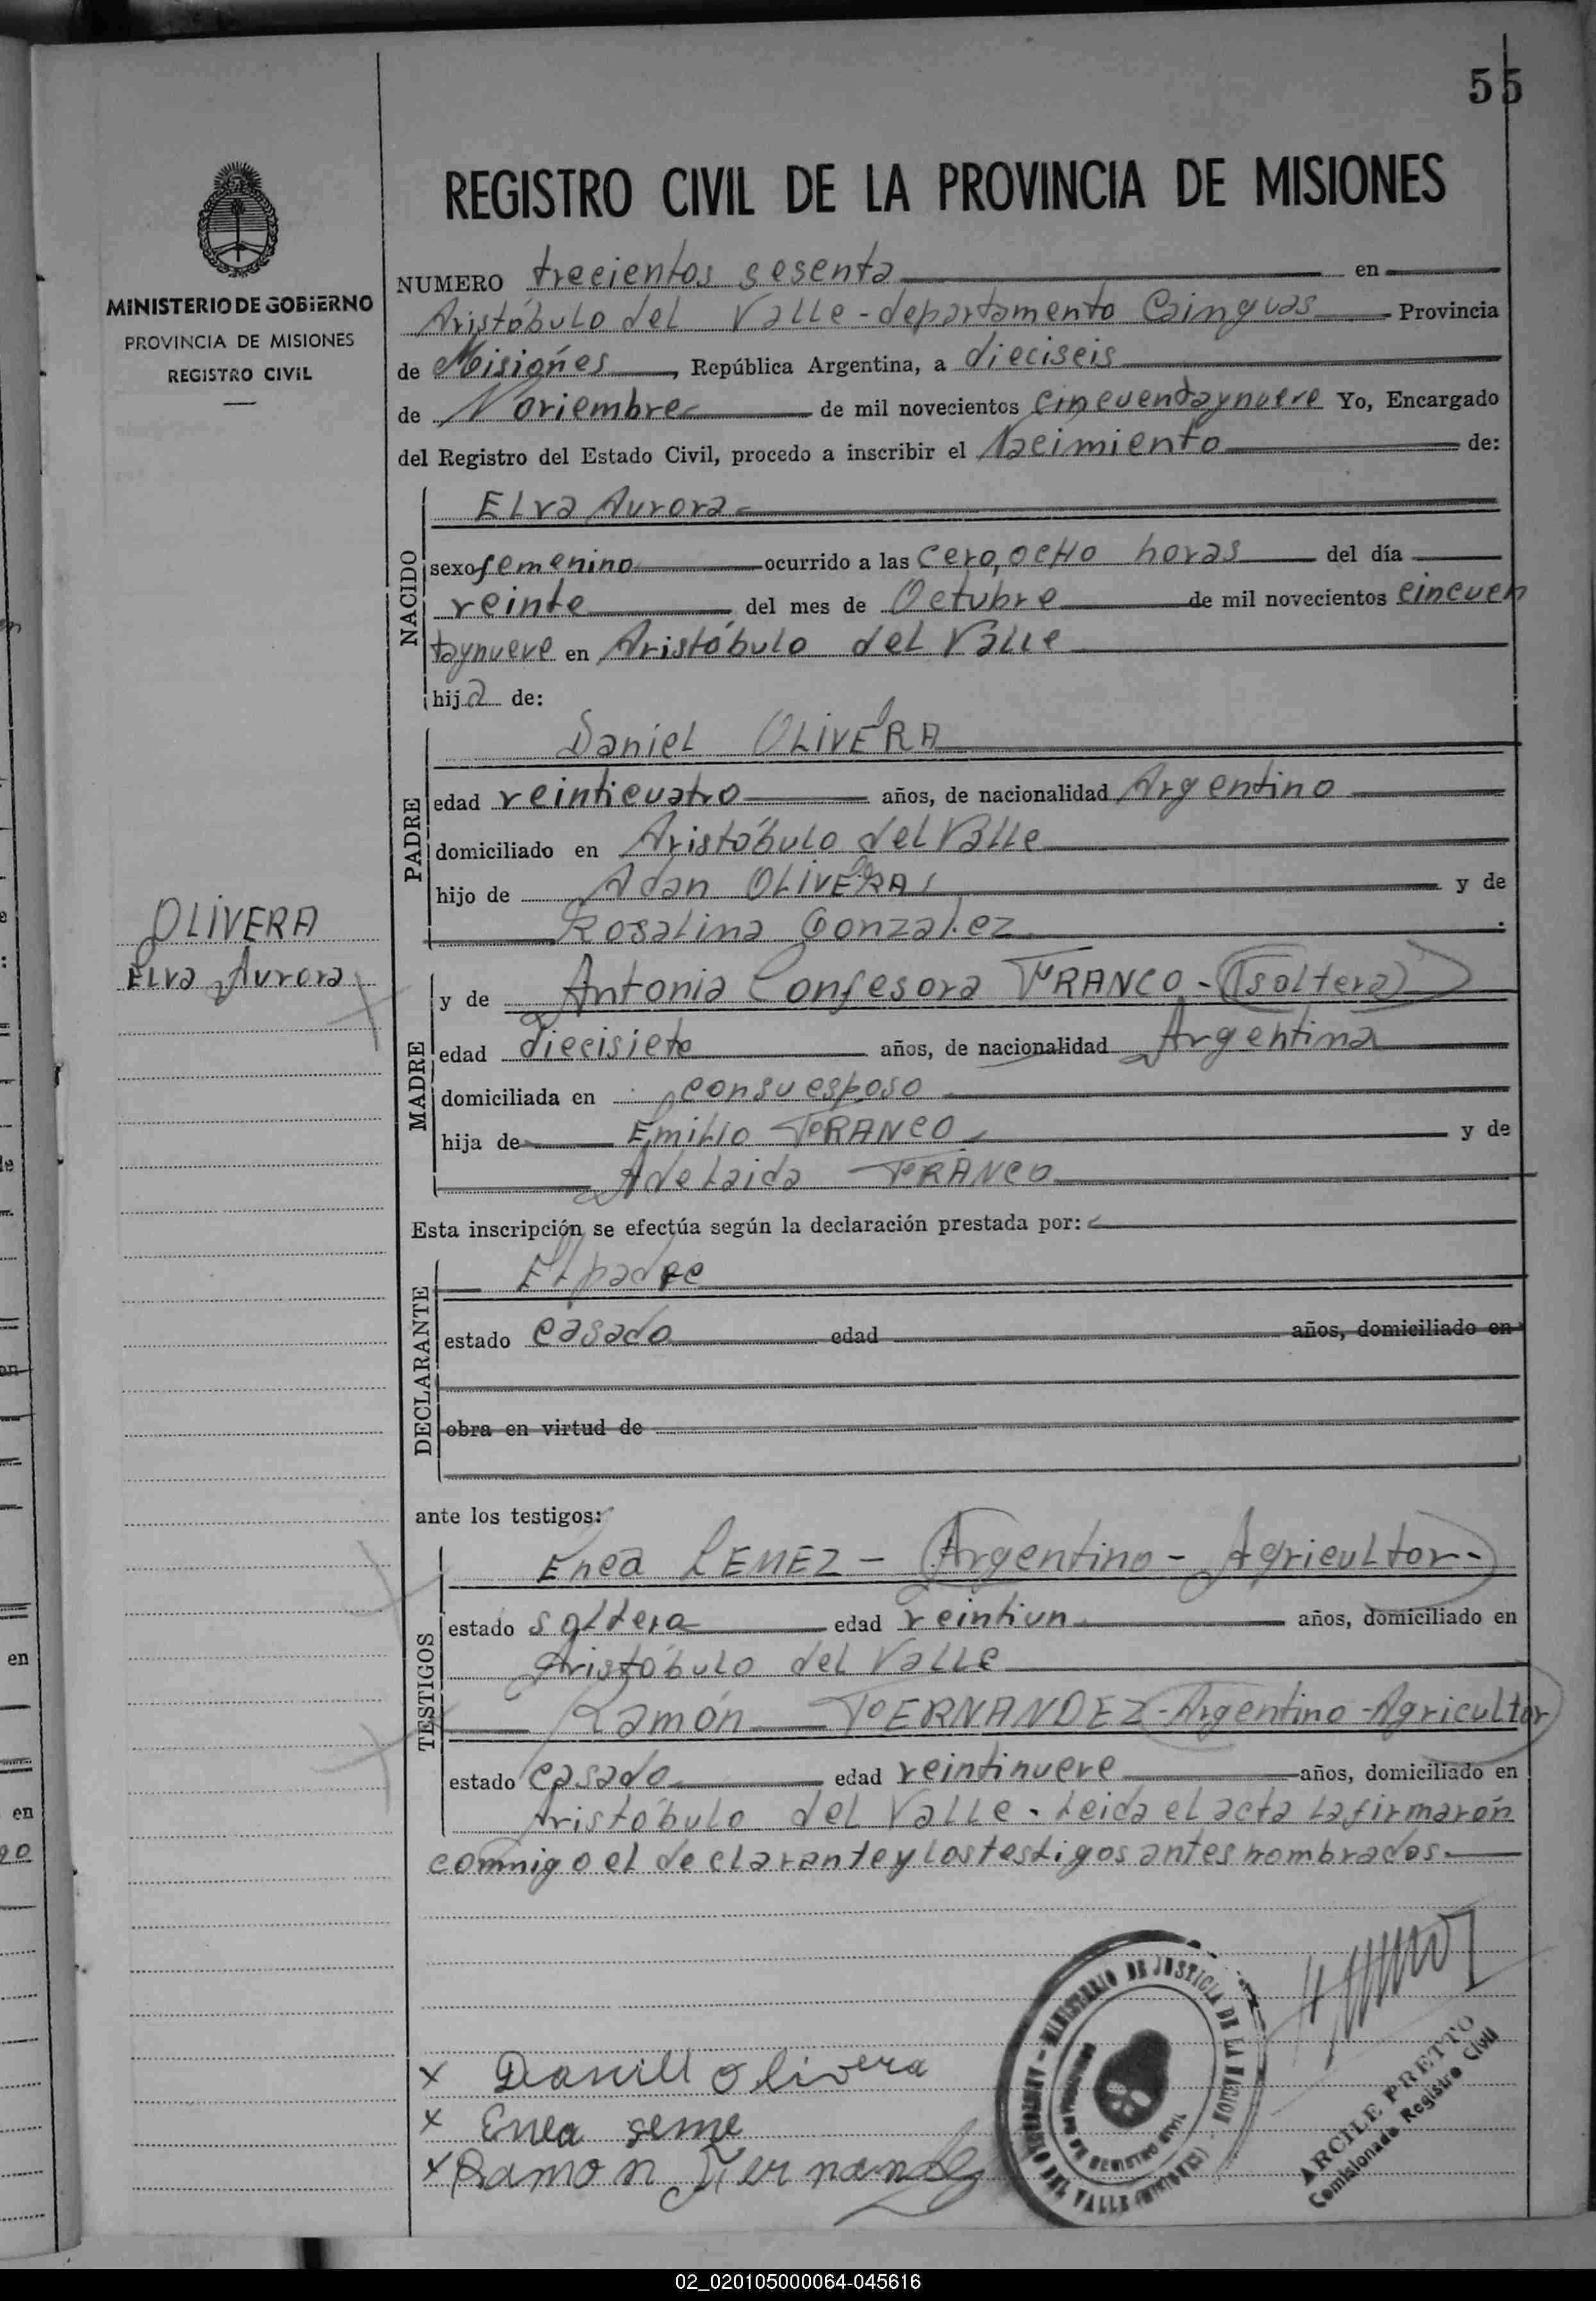 55
REGISTRO CIVIL DE LA PROVINCIA DE MISIONES
MINISTERIO DE GOBIERNO
PROVINCIA DE MISIONES
REGISTRO CIVIL
NUMERO trecientos sesenta en
Aristóbulo del Valle - departamento Cainguas Provincia
de Misiones, República Argentina, a dieciseis
de Noviembre de mil novecientos cincuentaynueve Yo, Encargado
del Registro del Estado Civil, procedo a inscribir el Nacimiento de:
NACIDO
Elva Aurora
sexo femenino ocurrido a las cero, ocho horas del día
veinte del mes de Octubre de mil novecientos cincuen
taynueve en Aristóbulo del Valle
hija de:
PADRE
Daniel OLIVERA
edad veinticuatro años, de nacionalidad Argentino
domiciliado en Aristóbulo del Valle
hijo de Adan OLIVERA y de
Rosalina Gonzalez
OLIVERA
Elva Aurora
MADRE
y de Antonia Confesora FRANCO - (soltera)
edad diecisiete años, de nacionalidad Argentina
domiciliada en con su esposo
hija de Emilio FRANCO y de
Adelaida FRANCO
Esta inscripción se efectúa según la declaración prestada por:
DECLARANTE
El padre
estado casado edad años, domiciliado en
obra en virtud de
ante los testigos:
TESTIGOS
Enea LEMEZ - Argentino - Agricultor -
estado soltera edad veintiun años, domiciliado en
Aristóbulo del Valle
Ramón FERNANDEZ - Argentino - Agricultor
estado casado edad veintinueve años, domiciliado en
Aristóbulo del Valle. Leida el acta la firmarón
commigo el declarante y los testigos antes nombrados.
x Daniell Olivera
x Enea
x Ramon Fernandez
MINISTERIO DE JUSTICIA DE LA NACION
DEL VALLE (MISIONES)
DE REGISTRO CIVIL
ARCILE PRETTO
Comisionada Registro Civil
02_020105000064-045616